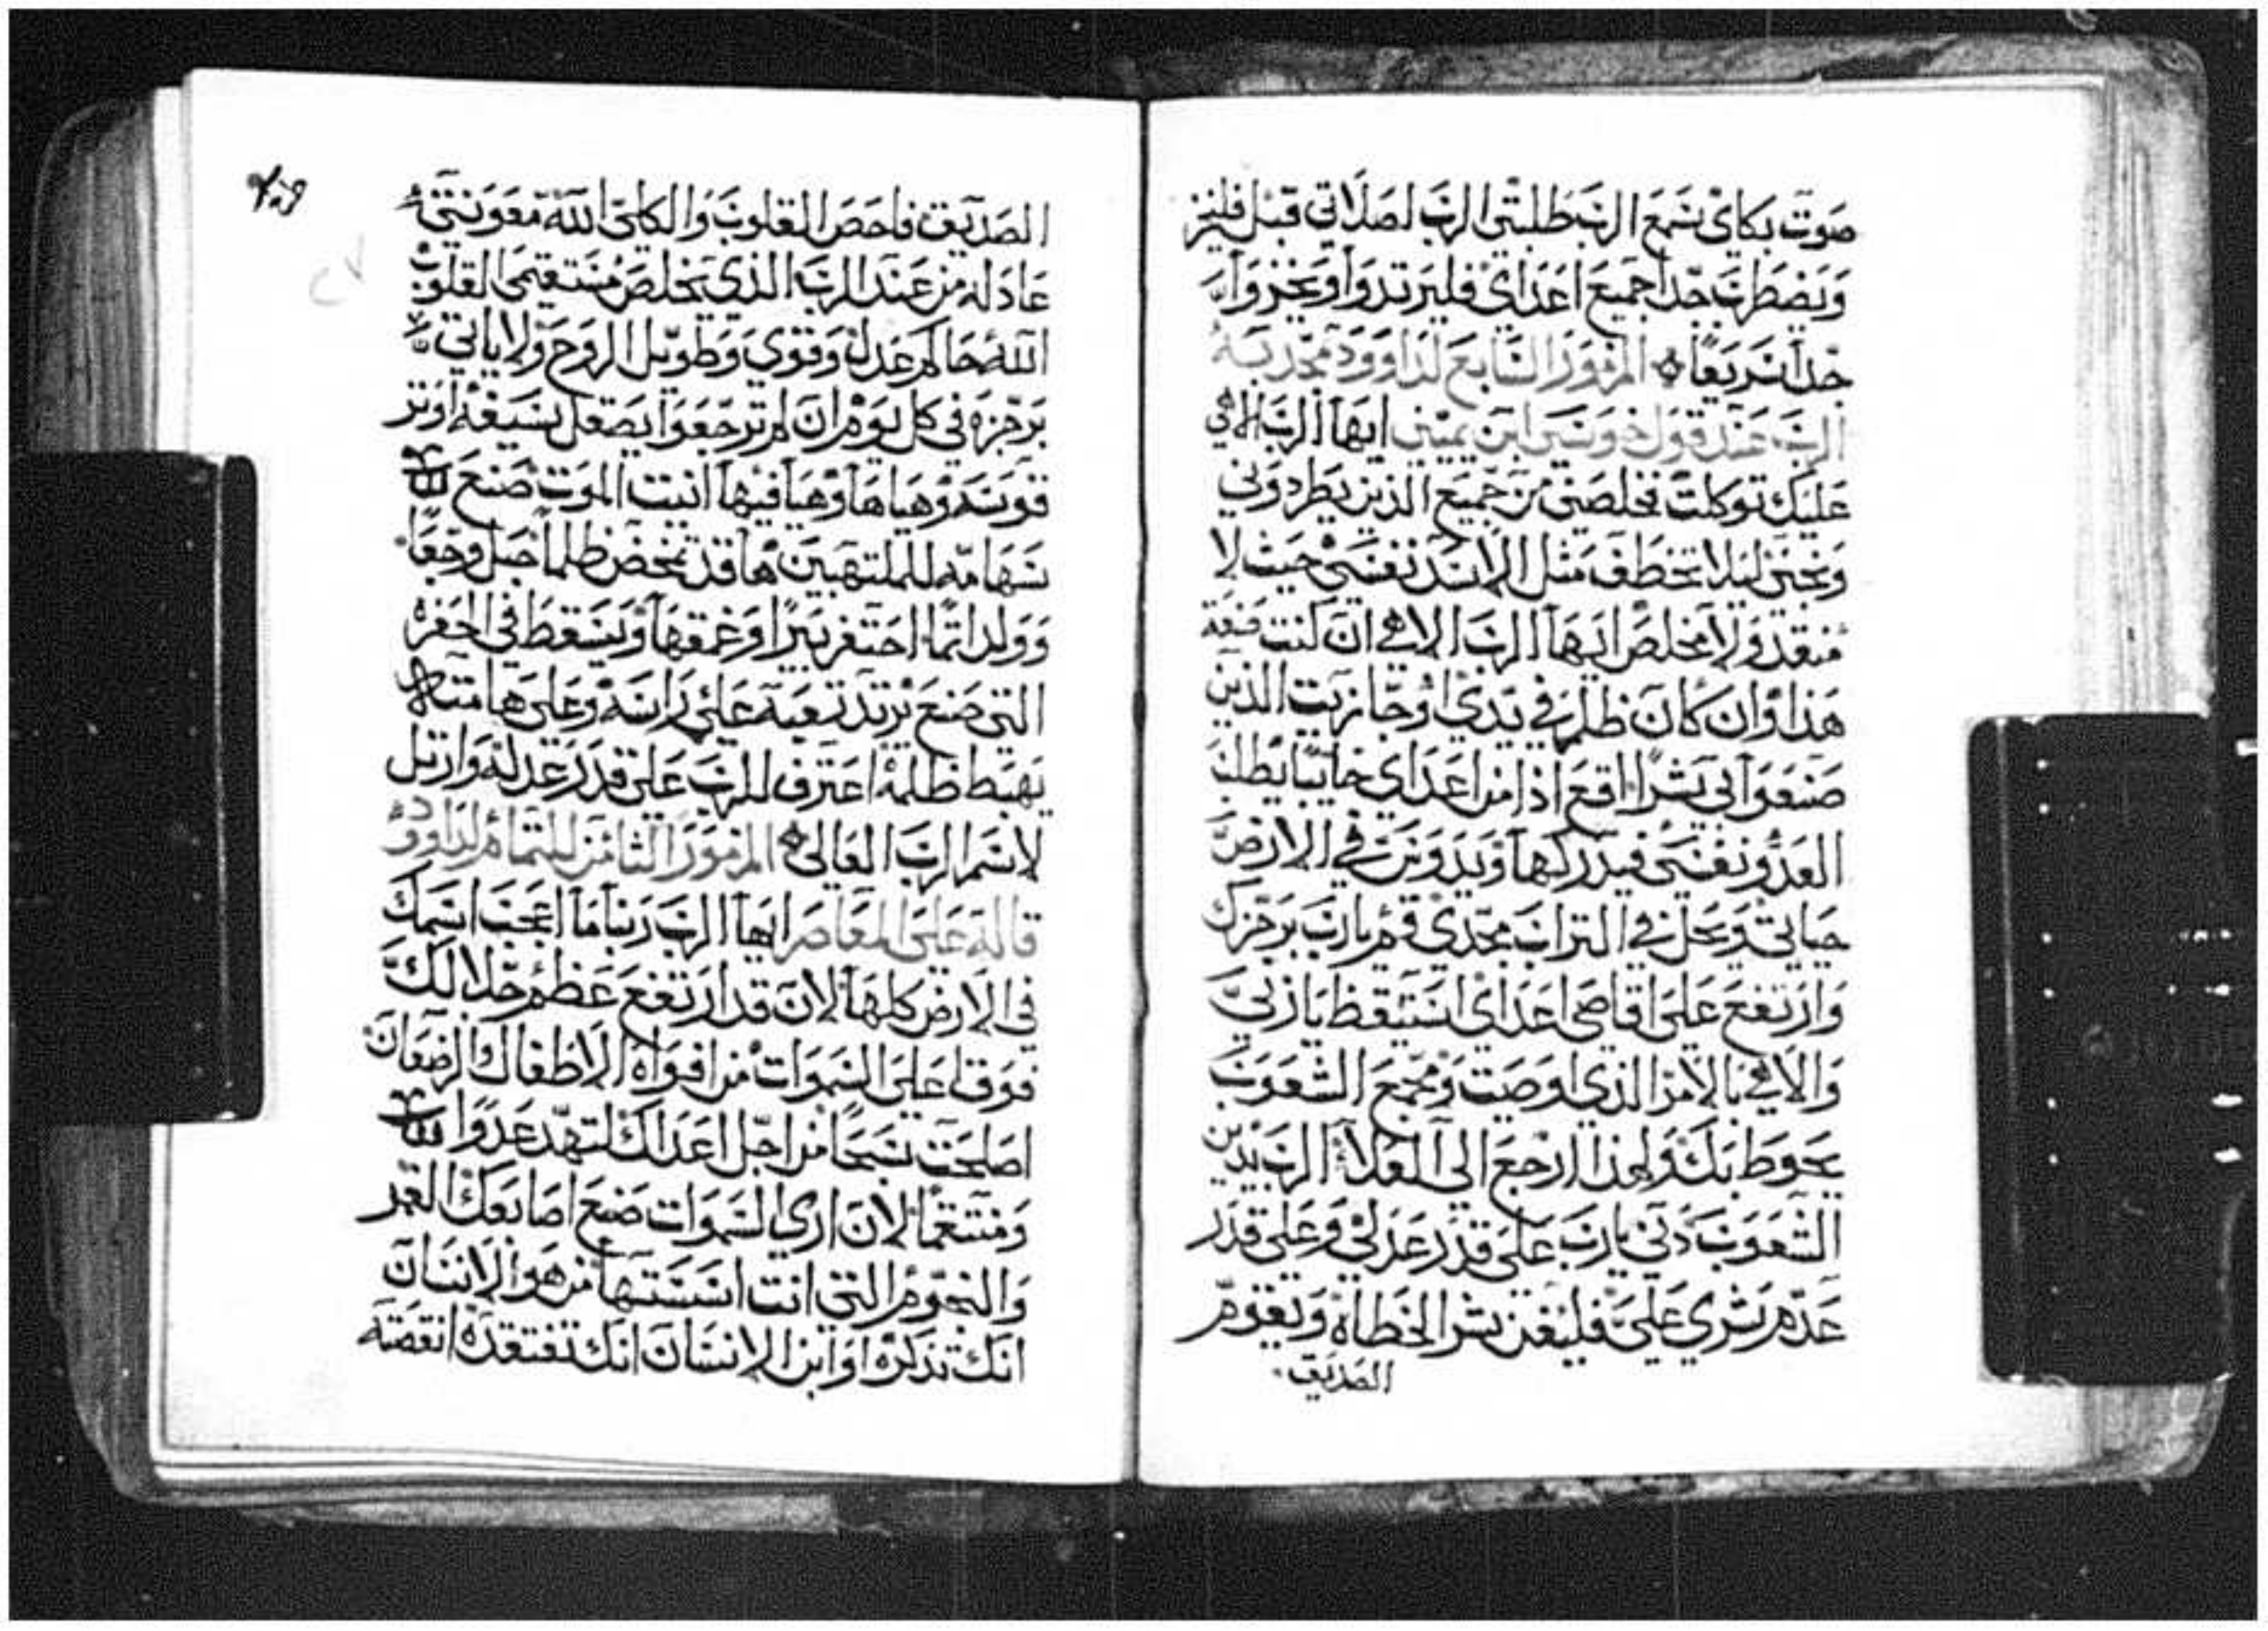 صوت بكاى سمع الرب طلبتى الرب لصلاتى قبل فليخز
ويضطرب جدا جميع اعداى فليرتدوا ويخزوا
جدا سريعا المزمور السابع لداوود تمجد به
الرب عند قول خوسى ابن يمينى ايها الرب الاهى
عليك توكلت فخلصنى من جميع الذين يطردونى
ونجنى ليلا تخطف مثل الاسد نفسى حيث لا
منقذ ولا مخلص ايها الرب الاهى ان كنت صنعة
هذا وان كان ظلم فى يدى او جازيت الذين
صنعوا بى شرا اقع اذا من اعداى خايبا يطلب
العدو نفسى فيدركها ويدوس فى الارض
حياتى ويحل فى التراب مجدى قم يارب برجزك
وارتفع على اقاصى اعداى استيقظ يا ربى
والاهى بالامر الذى اوصيت ومجمع الشعوب
يحوط بك ولهذا ارجع الى العلاء الرب يدين
الشعوب دنى يارب على قدر عدلى وعلى قدر
عدم شرى على فليفن شر الخطاة وتقوم
الصديق
٢٠٩
الصديق فاحص القلوب والكلى الله معونتى
عادله من عند الرب الذى يخلص مستقيمى القلوب
الله حاكم عدل وقوى وطويل الروح ولا ياتى
برجزه فى كل يوم ان لم ترجعوا يصقل سيفه اوتر
قوسه وهياها وهيا فيها انيت الموت صنع
سهامه للملتهبين ها قد تمخض ظلما حبل وجعا
وولد اثما احتفر بيرا وعمقها ويسقط فى الحفره
التى صنع يرتد تعبه على راسه وعلى هامته
يهبط ظلمه اعترف للرب على قدر عدله وارتل
لاسم الرب العالى المزمور الثامن للتمام لداوود
قاله على المعاصر ايها الرب ربنا ما اعجب اسمك
فى الارض كلها لان قد ارتفع عظم جلالك
فوق اعلى السموات من افواه الاطفال والرضعان
اصلحت سبحا من اجل اعداك لتهد عدوا
ومنتقما لان ارى السموات صنع اصابعك القمر
والنجوم التى انت اسستها من هو الانسان
انك تذكره او ابن الانسان انك تفتقده انقصته